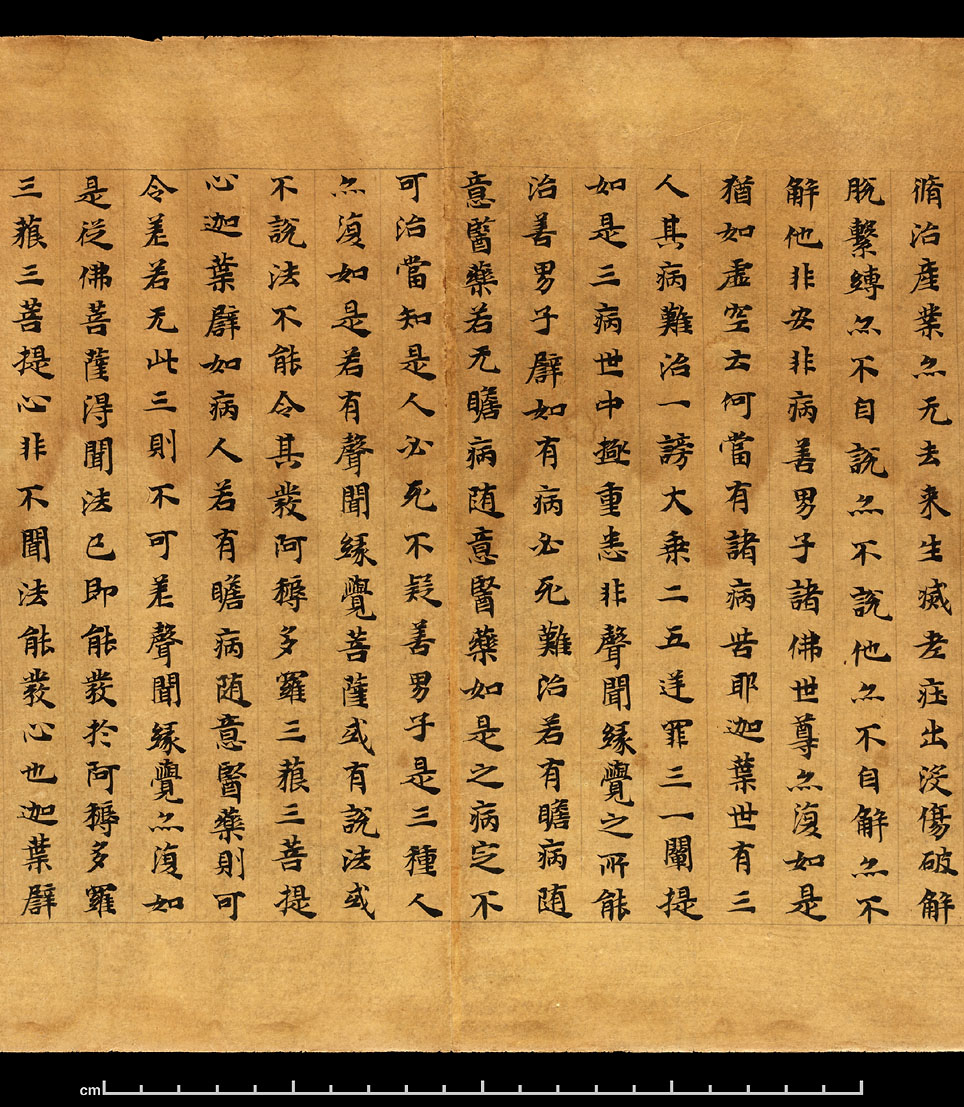 脩治産業亦无去来生滅老壯出没傷破解
脱繫縛亦不自說亦不說他亦不自解亦不
解他非安非病善男子諸佛世尊亦復如是
猶如虛空云何當有諸病苦耶迦葉世有三
人其病難治一謗大乘二五逆罪三一闡提
如是三病世中極重悉非聲聞緣覺之所能
治善男子譬如有病必死難治若有瞻病随
意醫藥若无瞻病随意醫藥如是之病定不
可治當知是人必死不疑善男子是三種人
亦復如是若有聲聞緣覺菩薩或有說法或
不說法不能令其發阿耨多羅三藐三菩提
心迦葉譬如病人若有瞻病随意醫藥則可
令差若无此三則不可差聲聞緣覺亦復如
是從佛菩薩得聞法已即能發於阿耨多羅
三藐三菩提心非不聞法能發心也迦葉譬
cm